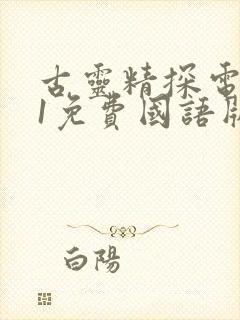 古靈精探電
1免費國語版
白陽